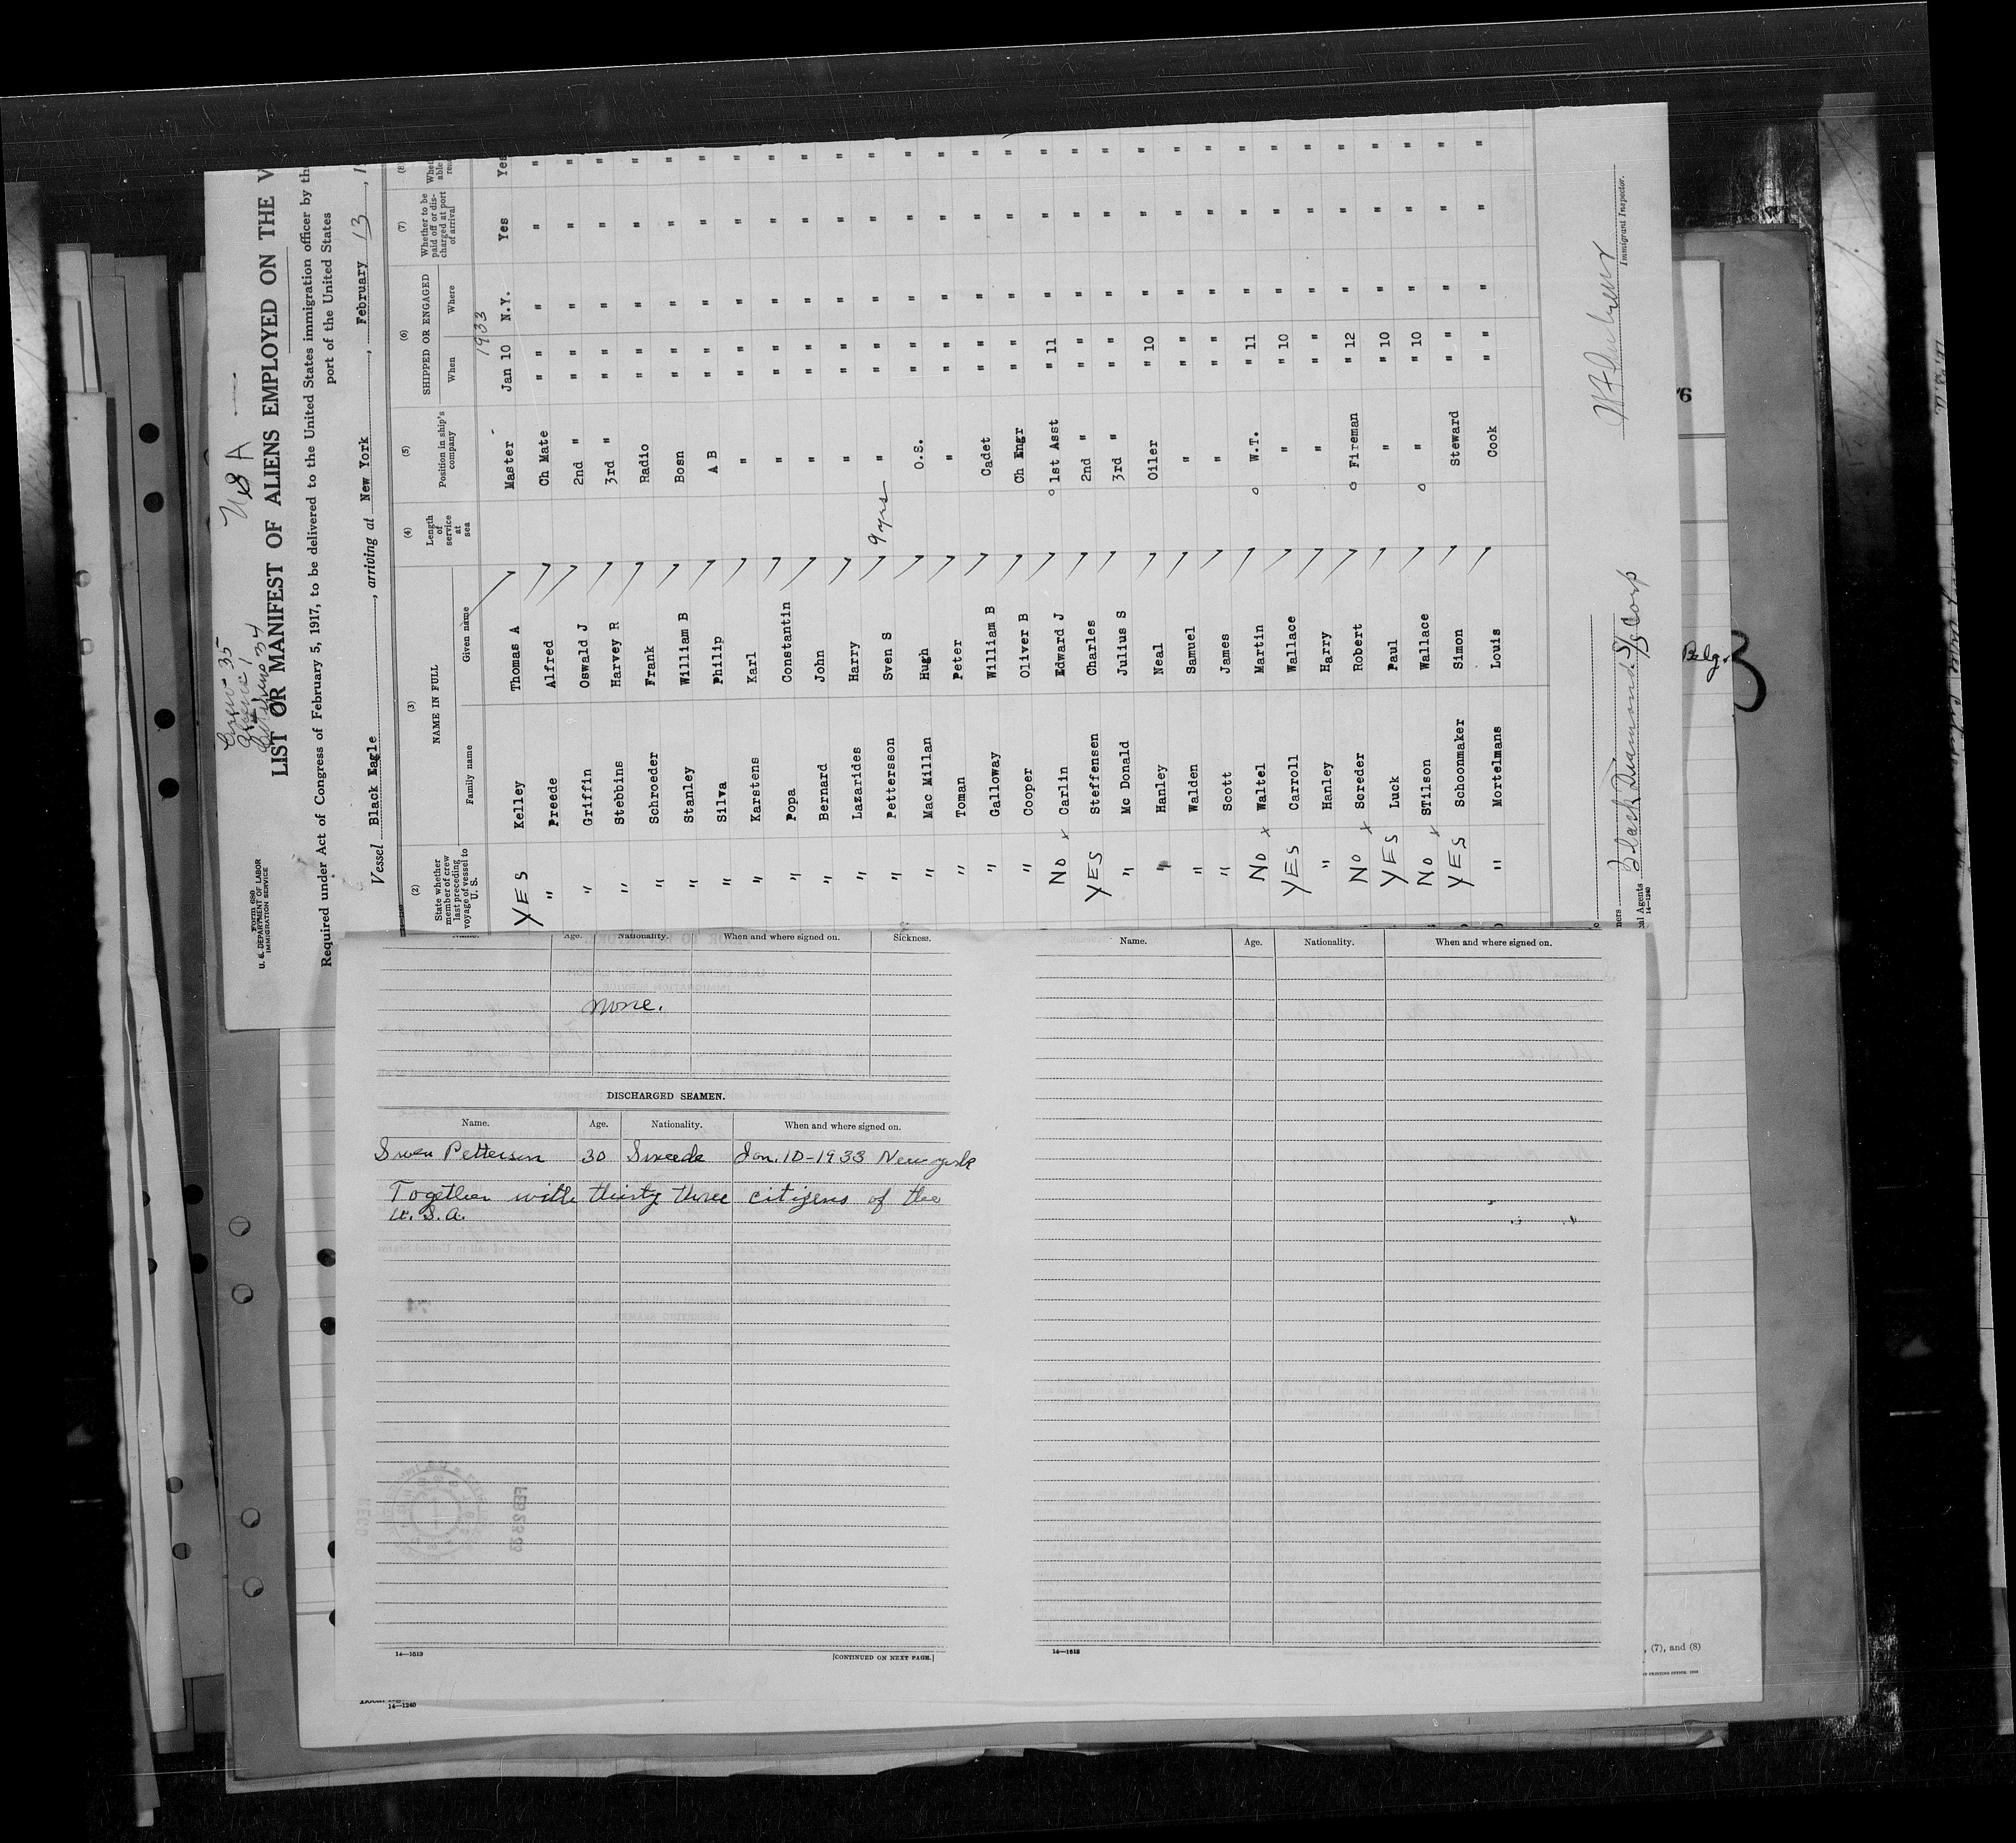 USA —
Crew 35
Aliens 1
Citizens 34
Form 680
U. S. DEPARTMENT OF LABOR
IMMIGRATION SERVICE
LIST OR MANIFEST OF ALIENS EMPLOYED ON THE V
Required under Act of Congress of February 5, 1917, to be delivered to the United States immigration officer by th
port of the United States
Vessel Black Eagle, arriving at New York, February 13, 1
(2) (3) (4) (5) (6) (7) (8)
State whether member of crew last preceding voyage of vessel to U. S. NAME IN FULL Family name Given name Length of service at sea Position in ship's company SHIPPED OR ENGAGED When Where Whether to be paid off or discharged at port of arrival
1933
YES Kelley Thomas A Master Jan 10 N.Y. Yes Yes
" Preede Alfred Ch Mate " " " " "
" Griffin Oswald J 2nd " " " " " "
" Stebbins Harvey R 3rd " " " " " "
" Schroeder Frank Radio " " " " "
" Stanley William B Bosn " " " " "
" Silva Philip A B " " " " "
" Karstens Karl " " " " " "
" Popa Constantin " " " " " "
" Bernard John " " " " " "
" Lazarides Harry " " " " " "
" Pettersson Sven S 9 yrs " " " " " "
" Mac Millan Hugh O.S. " " " " "
" Toman Peter " " " " " "
" Galloway William B Cadet " " " " "
" Cooper Oliver B Ch Engr " " " " "
No x Carlin Edward J 1st Asst " 11 " " "
YES Steffensen Charles 2nd " " " " " "
" Mc Donald Julius S 3rd " " " " " "
" Hanley Neal Oiler " 10 " " "
" Walden Samuel " " " " " "
" Scott James " " " " " "
No x Waltel Martin W.T. " 11 " " "
YES Carroll Wallace " " 10 " " "
" Hanley Harry " " " " " "
No x Screder Robert Fireman " 12 " " "
YES Luck Paul " " 10 " " "
No x STilson Wallace " " 10 " " "
YES Schoonmaker Simon Steward " " " " "
" Mortelmans Louis Cook " " " " "
Black Diamond SS Corp
Immigrant Inspector.
al Agents
14—1240
Belg.
Name. Age. Nationality. When and where signed on. Sickness.
none.
DISCHARGED SEAMEN.
Name. Age. Nationality. When and where signed on.
Swen Petterson 30 Sweede Jan. 10-1933 New york
Together with thirty three citizens of the
U. S. A.
14—1613
[CONTINUED ON NEXT PAGE.]
Name. Age. Nationality. When and where signed on.
14—1613
14—1240
, (7), and (8)